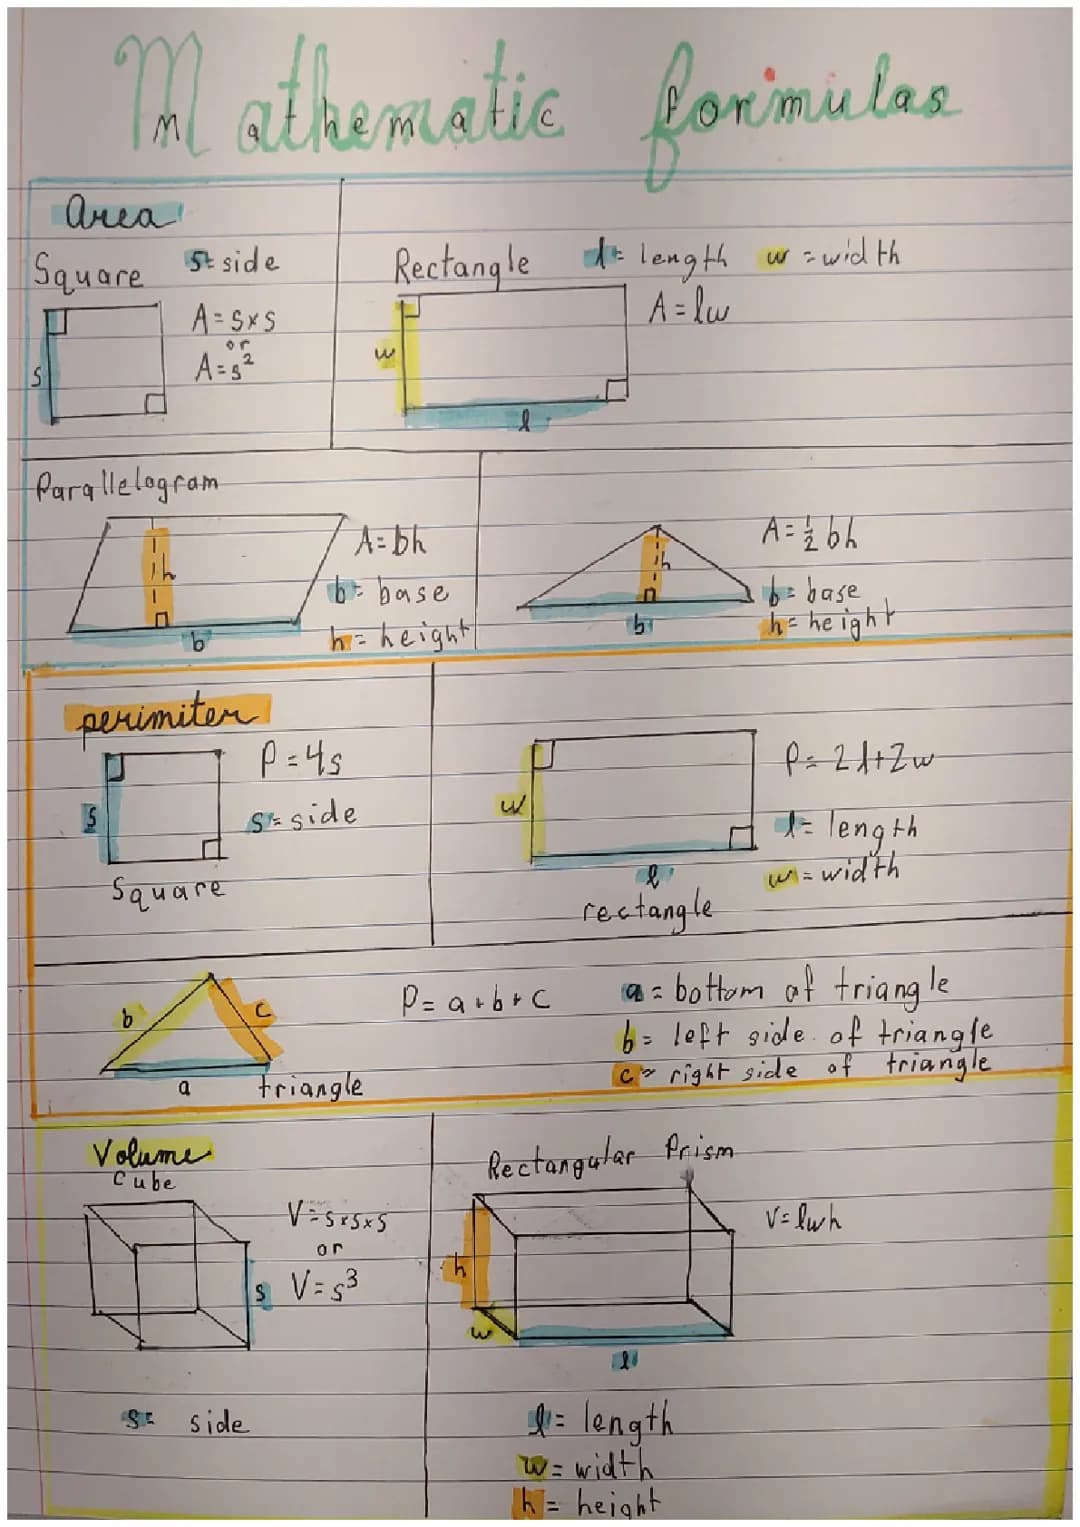 Mathematic formulas
Area
Square s= side
A = s×s
or
A = s²
s
Rectangle l= length w = width
A = lw
w
l
Parallelogram
h
b
A = bh
b= base
h= height
h
b
A = ½ bh
b= base
h= height
perimiter
s
P = 4s
s= side
Square
w
l
rectangle
P = 2l+2w
l= length
w = width
b
c
a
triangle
P = a+b+c
a = bottom of triangle
b= left side of triangle
c= right side of triangle
Volume
Cube
V = s×s×s
or
V = s³
s
s= side
Rectangular Prism
V = lwh
h
w
l
l= length
w = width
h = height